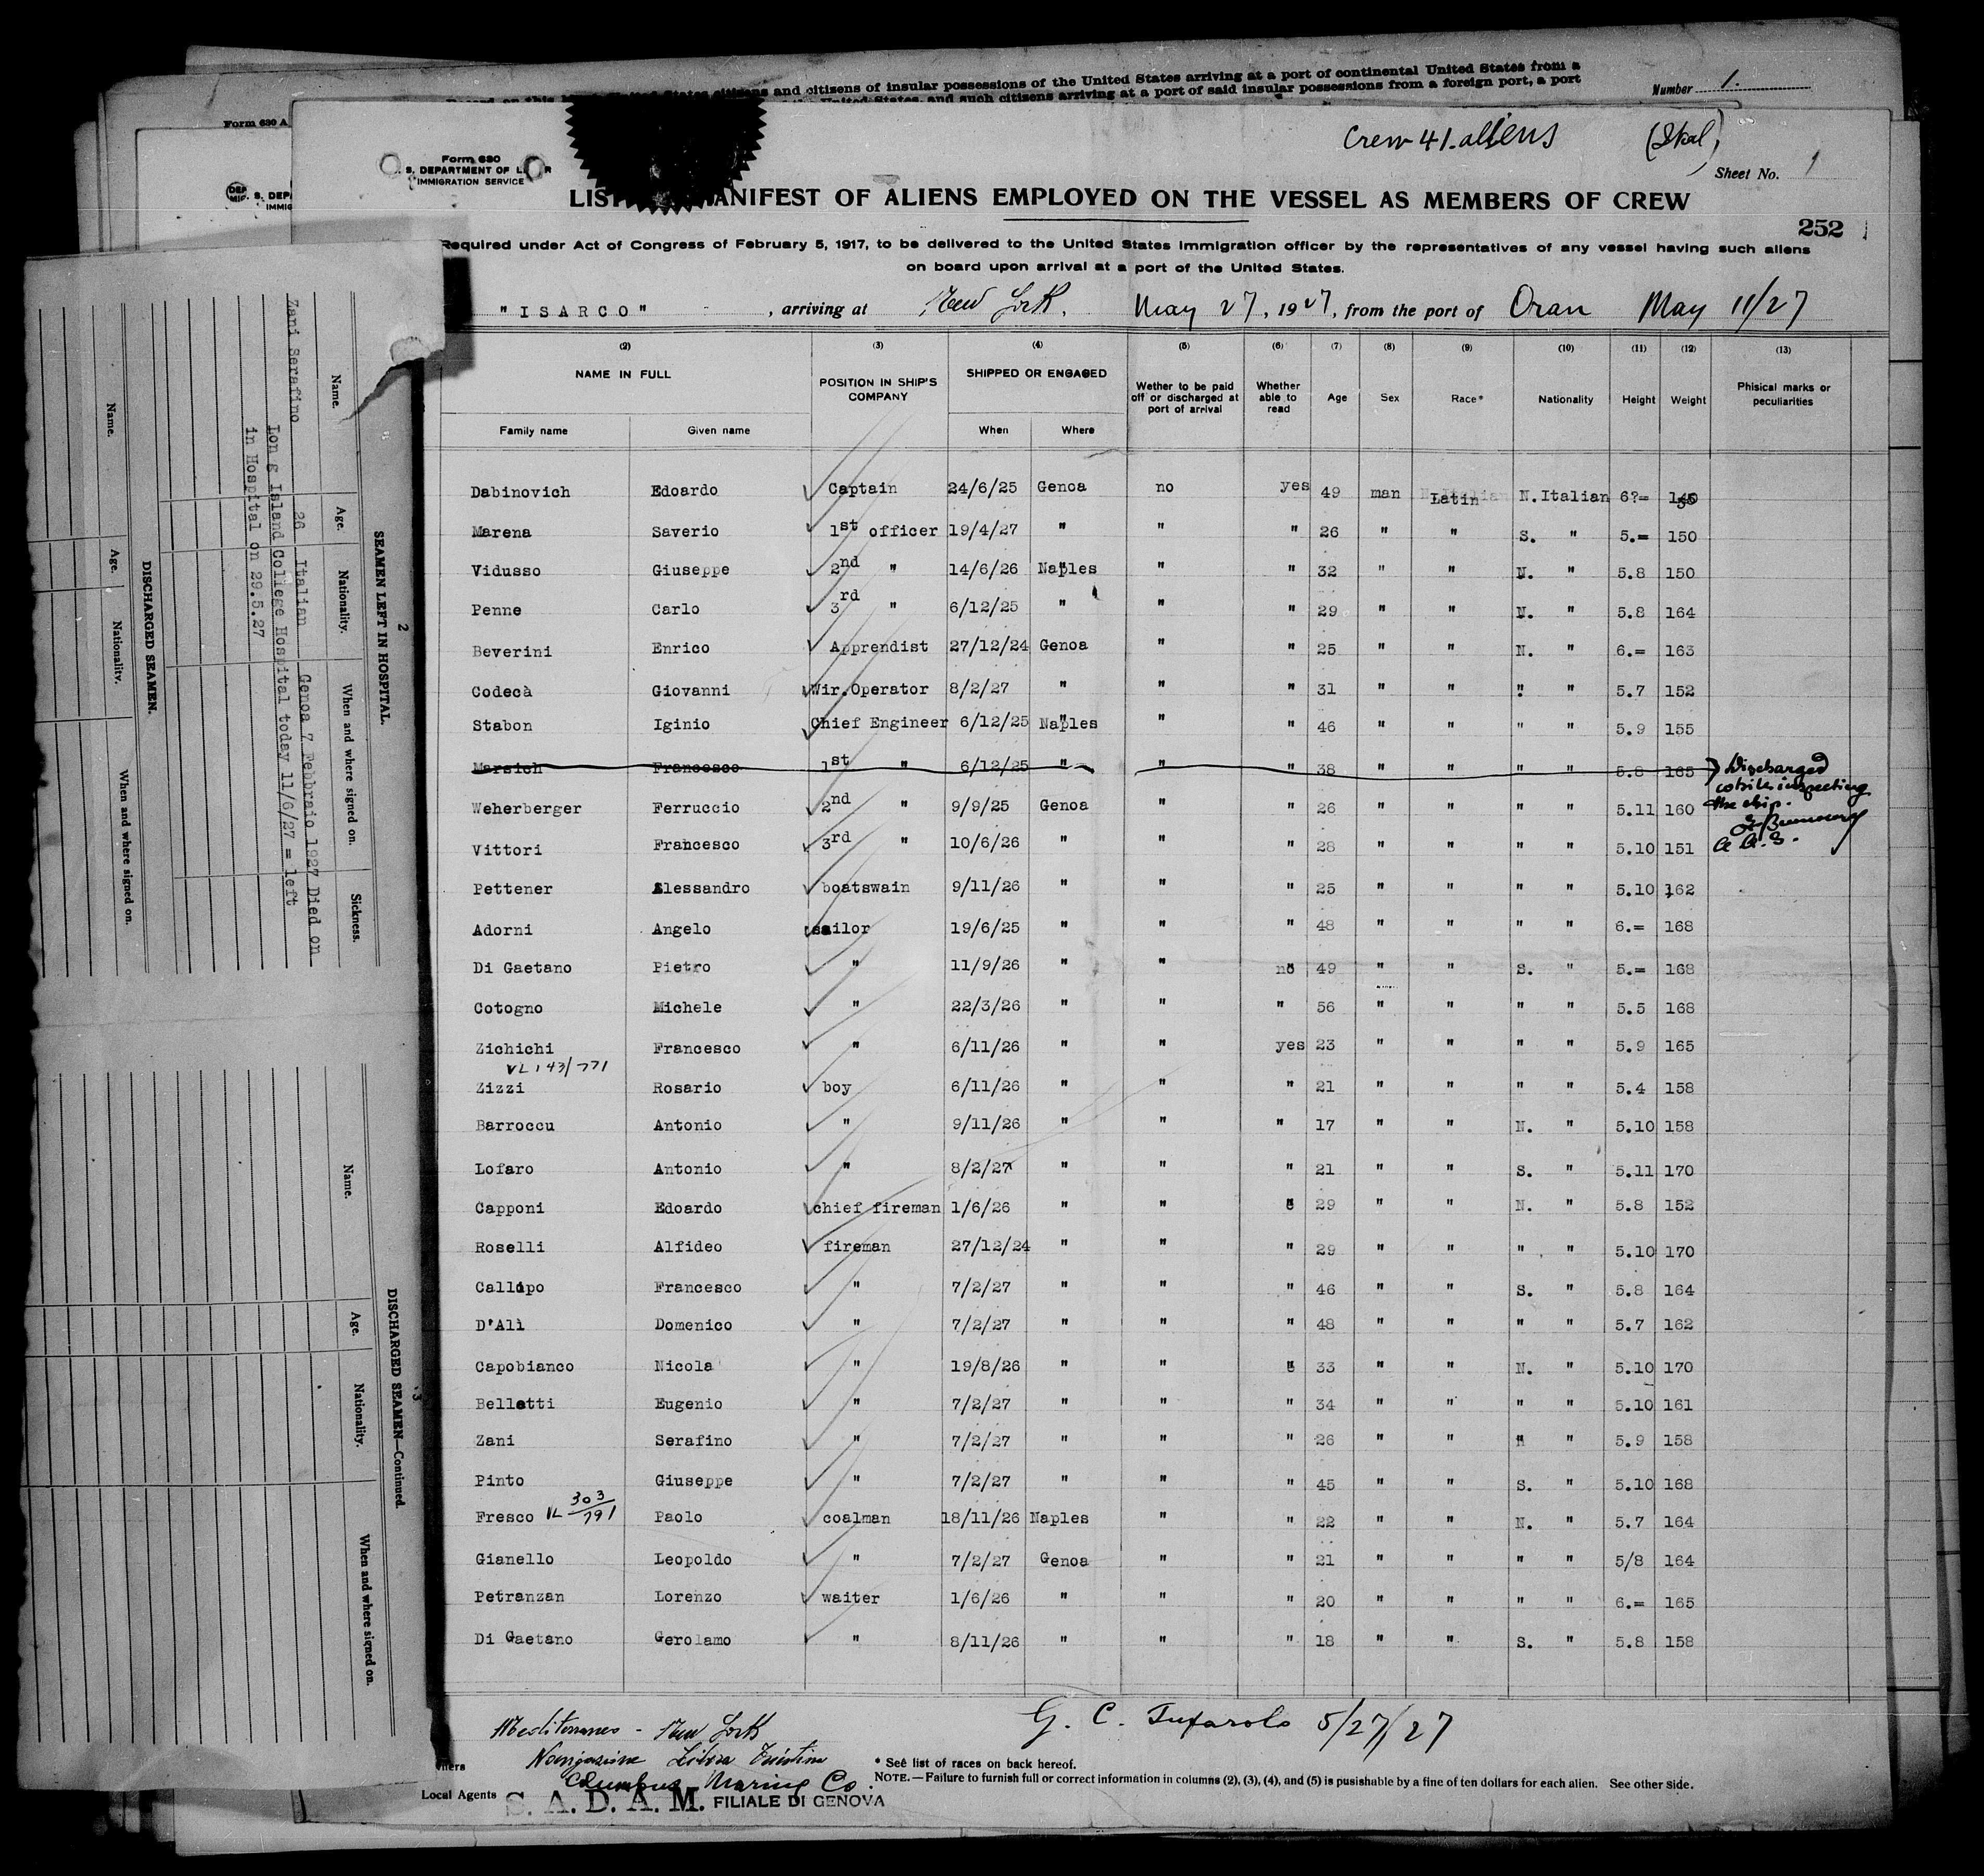 citizens and citizens of insular possessions of the United States arriving at a port of continental United States from a
United States, and such citizens arriving at a port of said insular possessions from a foreign port, a port
Number 1.
Form 630 A
Crew 41. aliens
Sheet No. 1
Form 630
S. DEPARTMENT OF
IMMIGRATION SERVICE
LIST MANIFEST OF ALIENS EMPLOYED ON THE VESSEL AS MEMBERS OF CREW
252
Required under Act of Congress of February 5, 1917, to be delivered to the United States immigration officer by the representatives of any vessel having such aliens
on board upon arrival at a port of the United States.
"ISARCO" , arriving at New York, May 27, 1927, from the port of Oran May 11/27
(2) (3) (4) (5) (6) (7) (8) (9) (10) (11) (12) (13)
NAME IN FULL POSITION IN SHIP'S COMPANY SHIPPED OR ENGAGED Wether to be paid off or discharged at port of arrival Whether able to read Age Sex Race* Nationality Height Weight Phisical marks or peculiarities
Family name Given name When Where
Dabinovich Edoardo Captain 24/6/25 Genoa no yes 49 man Latin N.Italian 6?=
Marena Saverio 1st officer 19/4/27 " " " 26 " " S. " 5.= 150
Vidusso Giuseppe 2nd " 14/6/26 Naples " " 32 " " N. " 5.8 150
Penne Carlo 3rd " 6/12/25 " " " 29 " " N. " 5.8 164
Beverini Enrico Apprendist 27/12/24 Genoa " " 25 " " N. " 6.= 163
Codecà Giovanni Wir.Operator 8/2/27 " " " 31 " " " " 5.7 152
Stabon Iginio Chief Engineer 6/12/25 Naples " " 46 " " " " 5.9 155
Marsich Francesco 1st " 6/12/25 " " " 38 " " " " 5.8 165 Discharged
while inspecting
the ship.
Weherberger Ferruccio 2nd " 9/9/25 Genoa " " 26 " " " " 5.11 160
Vittori Francesco 3rd " 10/6/26 " " " 28 " " " " 5.10 151
Pettener Alessandro boatswain 9/11/26 " " " 25 " " " " 5.10 162
Adorni Angelo sailor 19/6/25 " " " 48 " " " " 6.= 168
Di Gaetano Pietro " 11/9/26 " " no 49 " " S. " 5.= 168
Cotogno Michele " 22/3/26 " " " 56 " " " " 5.5 168
Zichichi Francesco " 6/11/26 " " yes 23 " " " " 5.9 165
VL 143/771
Zizzi Rosario boy 6/11/26 " " " 21 " " " " 5.4 158
Barroccu Antonio " 9/11/26 " " " 17 " " N. " 5.10 158
Lofaro Antonio " 8/2/27 " " " 21 " " S. " 5.11 170
Capponi Edoardo chief fireman 1/6/26 " " " 29 " " N. " 5.8 152
Roselli Alfideo fireman 27/12/24 " " " 29 " " " " 5.10 170
Callipo Francesco " 7/2/27 " " " 46 " " S. " 5.8 164
D'Alì Domenico " 7/2/27 " " " 48 " " " " 5.7 162
Capobianco Nicola " 19/8/26 " " " 33 " " N. " 5.10 170
Bellatti Eugenio " 7/2/27 " " " 34 " " " " 5.10 161
Zani Serafino " 7/2/27 " " " 26 " " " " 5.9 158
Pinto Giuseppe " 7/2/27 " " " 45 " " S. " 5.10 168
Fresco VL 303/791 Paolo coalman 18/11/26 Naples " " 22 " " N. " 5.7 164
Gianello Leopoldo " 7/2/27 Genoa " " 21 " " " " 5/8 164
Petranzan Lorenzo waiter 1/6/26 " " " 20 " " " " 6.= 165
Di Gaetano Gerolamo " 8/11/26 " " " 18 " " S. " 5.8 158
Mediterraneo - New York
G. C. Tufarolo 5/27/27
Navigazione Libera Triestina
Columbus Marine Co.
* See list of races on back hereof.
NOTE.—Failure to furnish full or correct information in columns (2), (3), (4), and (5) is pusishable by a fine of ten dollars for each alien. See other side.
Local Agents S. A. D. A. M. FILIALE DI GENOVA
2
SEAMEN LEFT IN HOSPITAL.
Name. Age. Nationality. When and where signed on. Sickness.
Zani Serafino 26 Italian Genoa 7 Febbraio 1927 Died on
Long Island College Hospital today 11/6/27 = left
in Hospital on 29.5.27
DISCHARGED SEAMEN.
Name. Age. Nationality. When and where signed on.
3
DISCHARGED SEAMEN—Continued.
Name. Age. Nationality. When and where signed on.